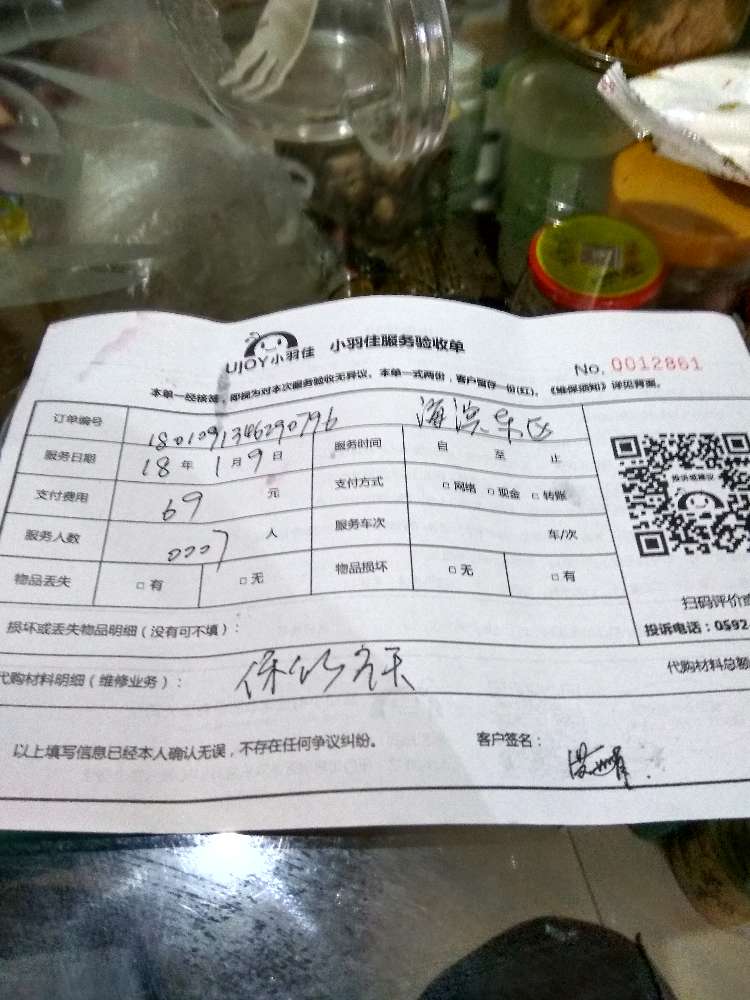 UJOY小羽佳 小羽佳服务验收单
No. 0012861
本单一经核签，即视为对本次服务验收无异议。本单一式两份，客户留存一份(红)。《维保须知》详见背面。
订单编号 180109134629079б 海沧东区
服务日期 18 年 1 月 9 日 服务时间 自 至 止
支付费用 69 元 支付方式 □ 网络 □ 现金 □ 转账
服务人数 0007 人 服务车次 车/次
物品丢失 □ 有 □ 无 物品损坏 □ 无 □ 有
投诉或建议
扫码评价或
投诉电话：0592-
损坏或丢失物品明细（没有可不填）：
代购材料明细（维修业务）： 保修 天 代购材料总额
以上填写信息已经本人确认无误，不存在任何争议纠纷。 客户签名：